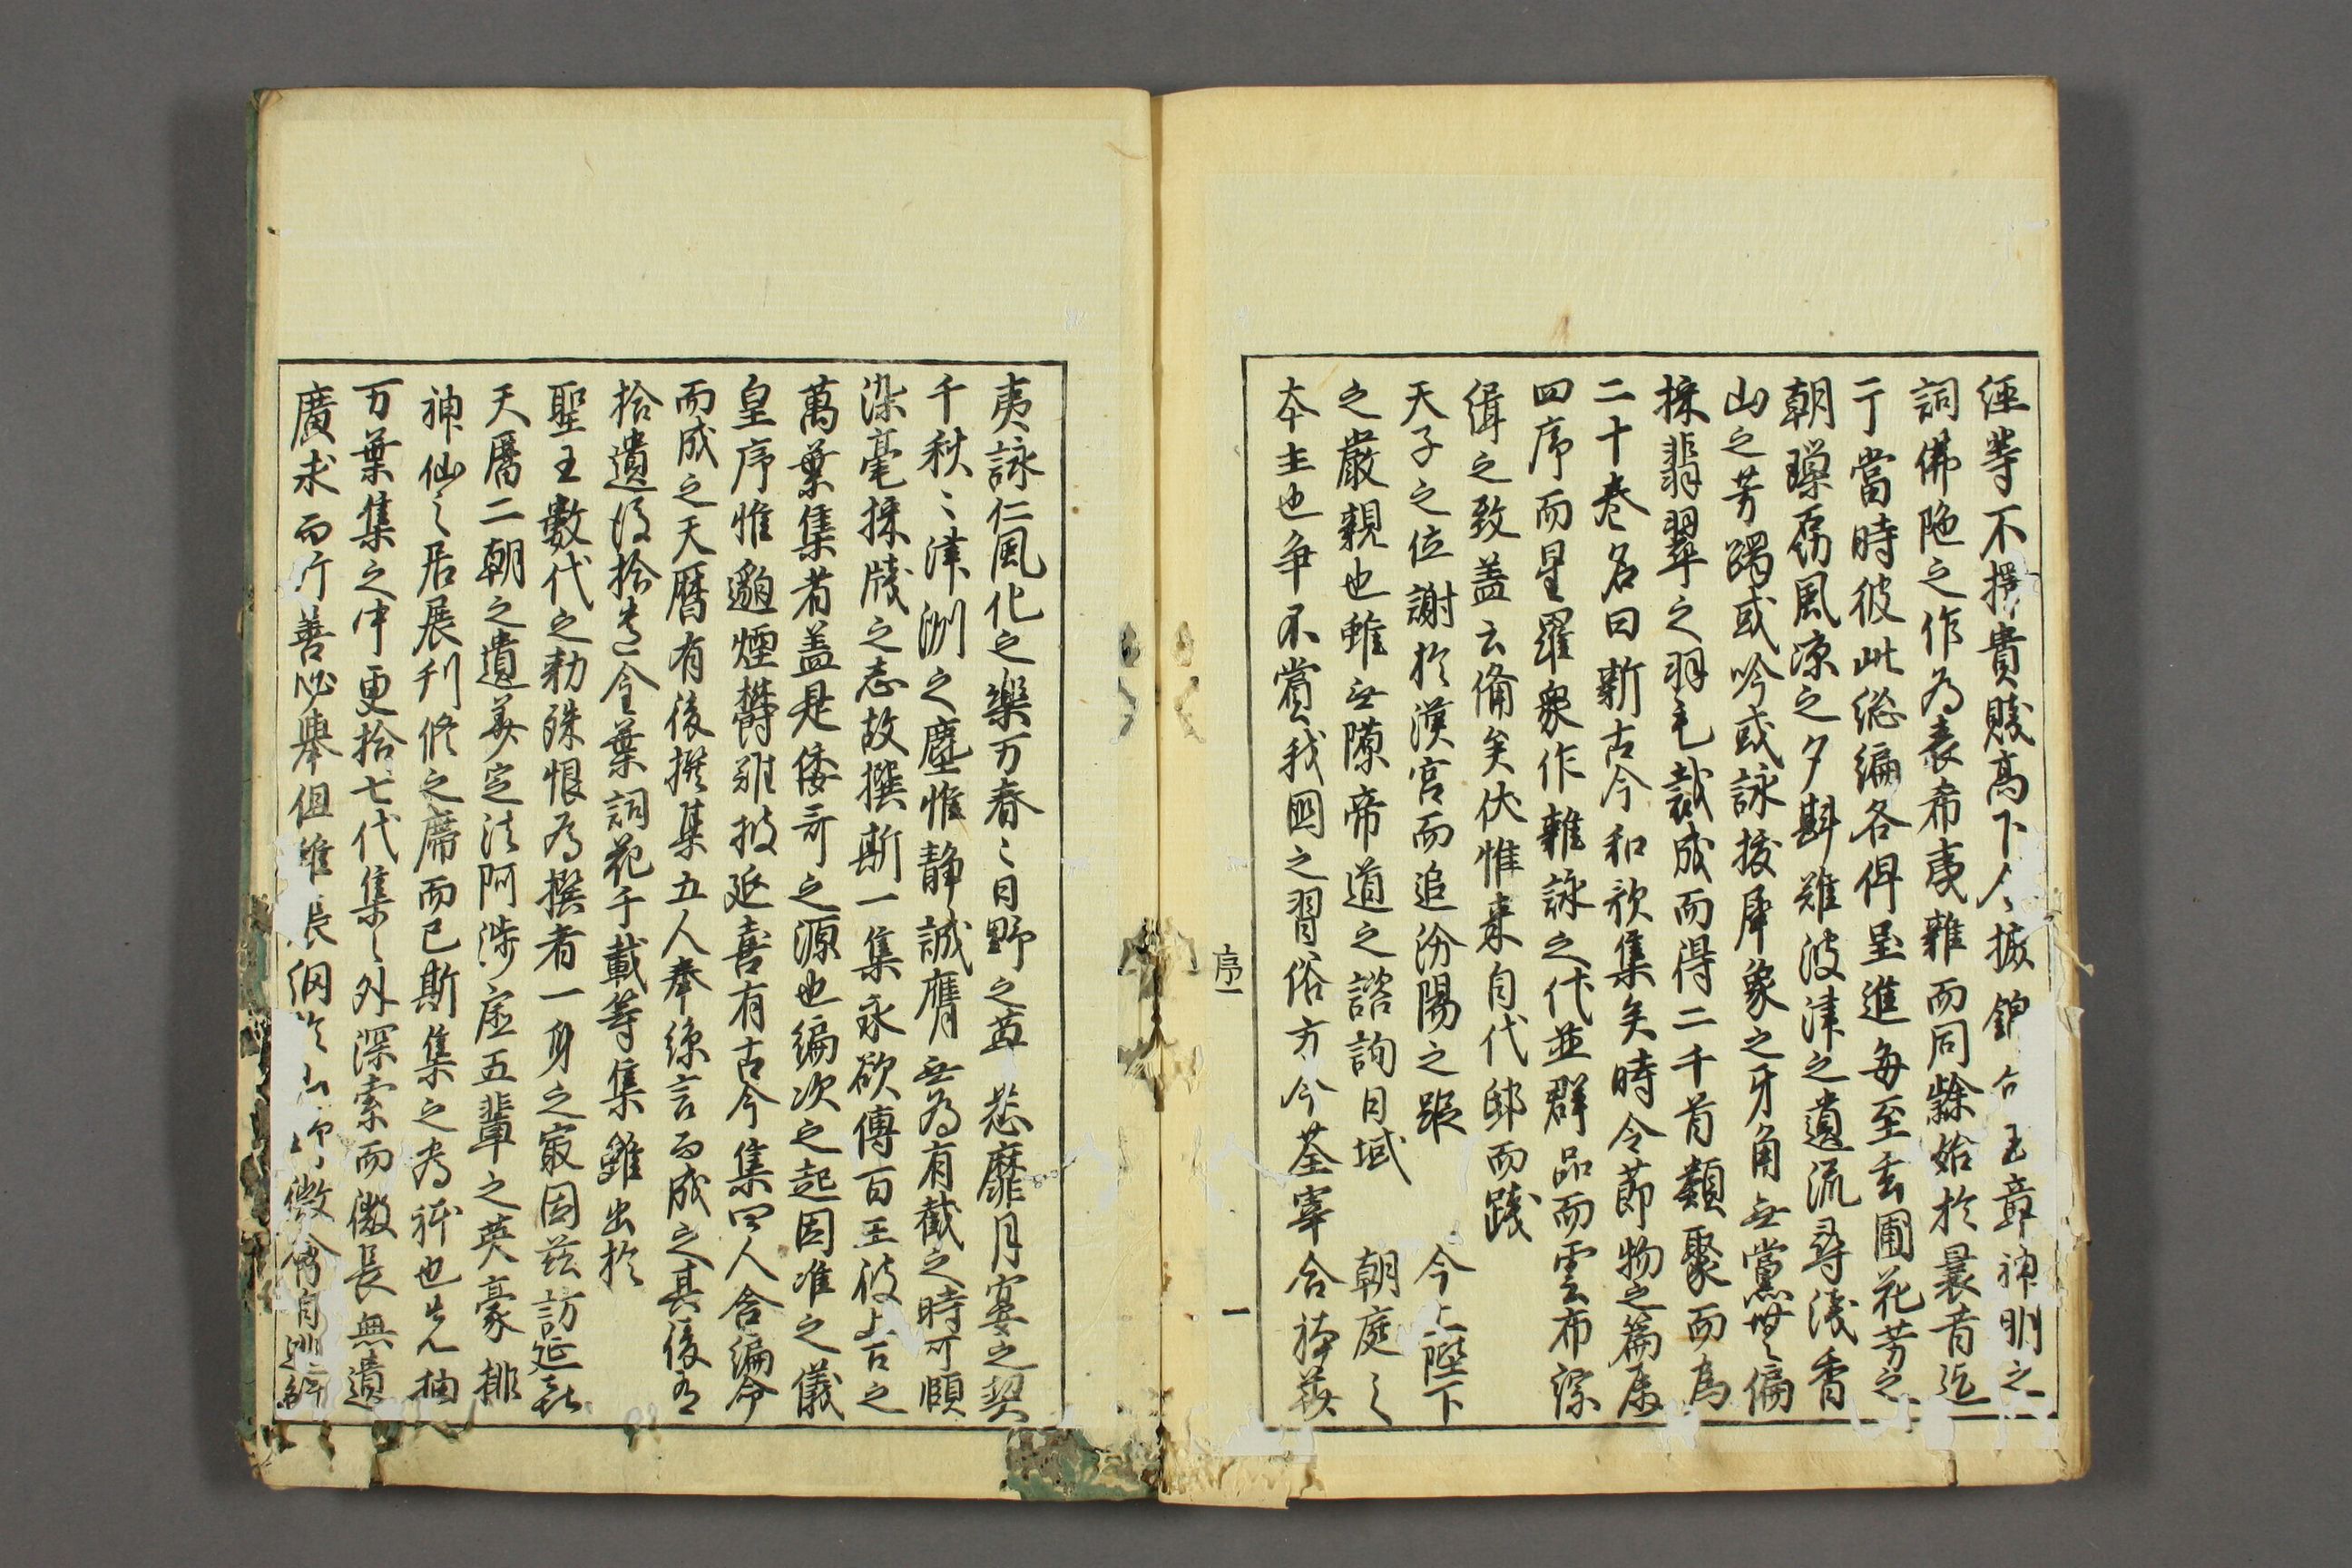 經等不擇貴賤高下人捃錦句玉章神明之
詞佛陁之作為表希夷雜而同隸始於曩昔迄
于當時彼此総編各俾呈進毎至玄圃花芳之
朝璅砌風凉之夕斟難波津之遺流尋淺香
山之芳躅或吟或詠拔犀象之牙角無黨無偏
採翡翠之羽毛裁成而得二千首類聚而為
二十卷名曰新古今和歌集矣時令莭物之篇属
四序而星羅衆作雜詠之什並群品而雲布綜
緝之致盖云備矣伏惟来自代邸而踐
天子之位謝於漢宮而追汾陽之蹤
今上陛下
之嚴親也雖無隙帝道之諮詢日域
朝庭之
夲主也争不賞我國之習俗方今荃宰合軆華
序
一
夷詠仁風化之樂万春ミ日野之草悉靡月宴之契
千秋ミ津洲之塵惟静誠膺無為有截之時可頤
染毫採牋之志故撰斯一集永欲傳百王彼上古之
萬葉集者盖是倭哥之源也編次之起因准之儀
皇序惟邈煙欝難披延喜有古今集四人含綸命
而成之天暦有後撰集五人奉絲言而成之其後有
拾遺後拾遺金葉詞花千載等集雖出於
聖王數代之勅殊恨為撰者一身之最因茲訪延喜
天暦二朝之遺美定法阿渉虚五輩之英豪排
神仙之居展刋修之席而已斯集之為軆也先抽
万葉集之中更拾七代集之外深索而微長無遺
廣求而片善必擧但雖張網於山野微禽自逃